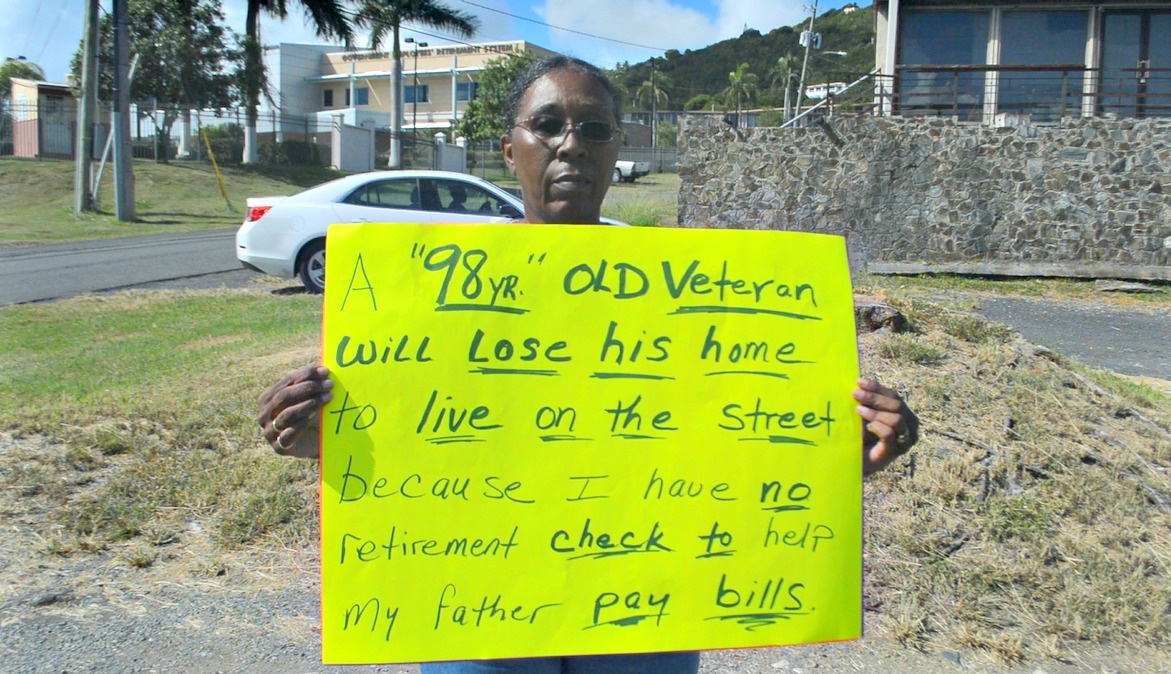 GOVERNMENT EMPLOYEES' RETIREMENT SYSTEM
A "98 YR." OLD Veteran
will Lose his home
to live on the street
because I have no
retirement check to help
my father pay bills.